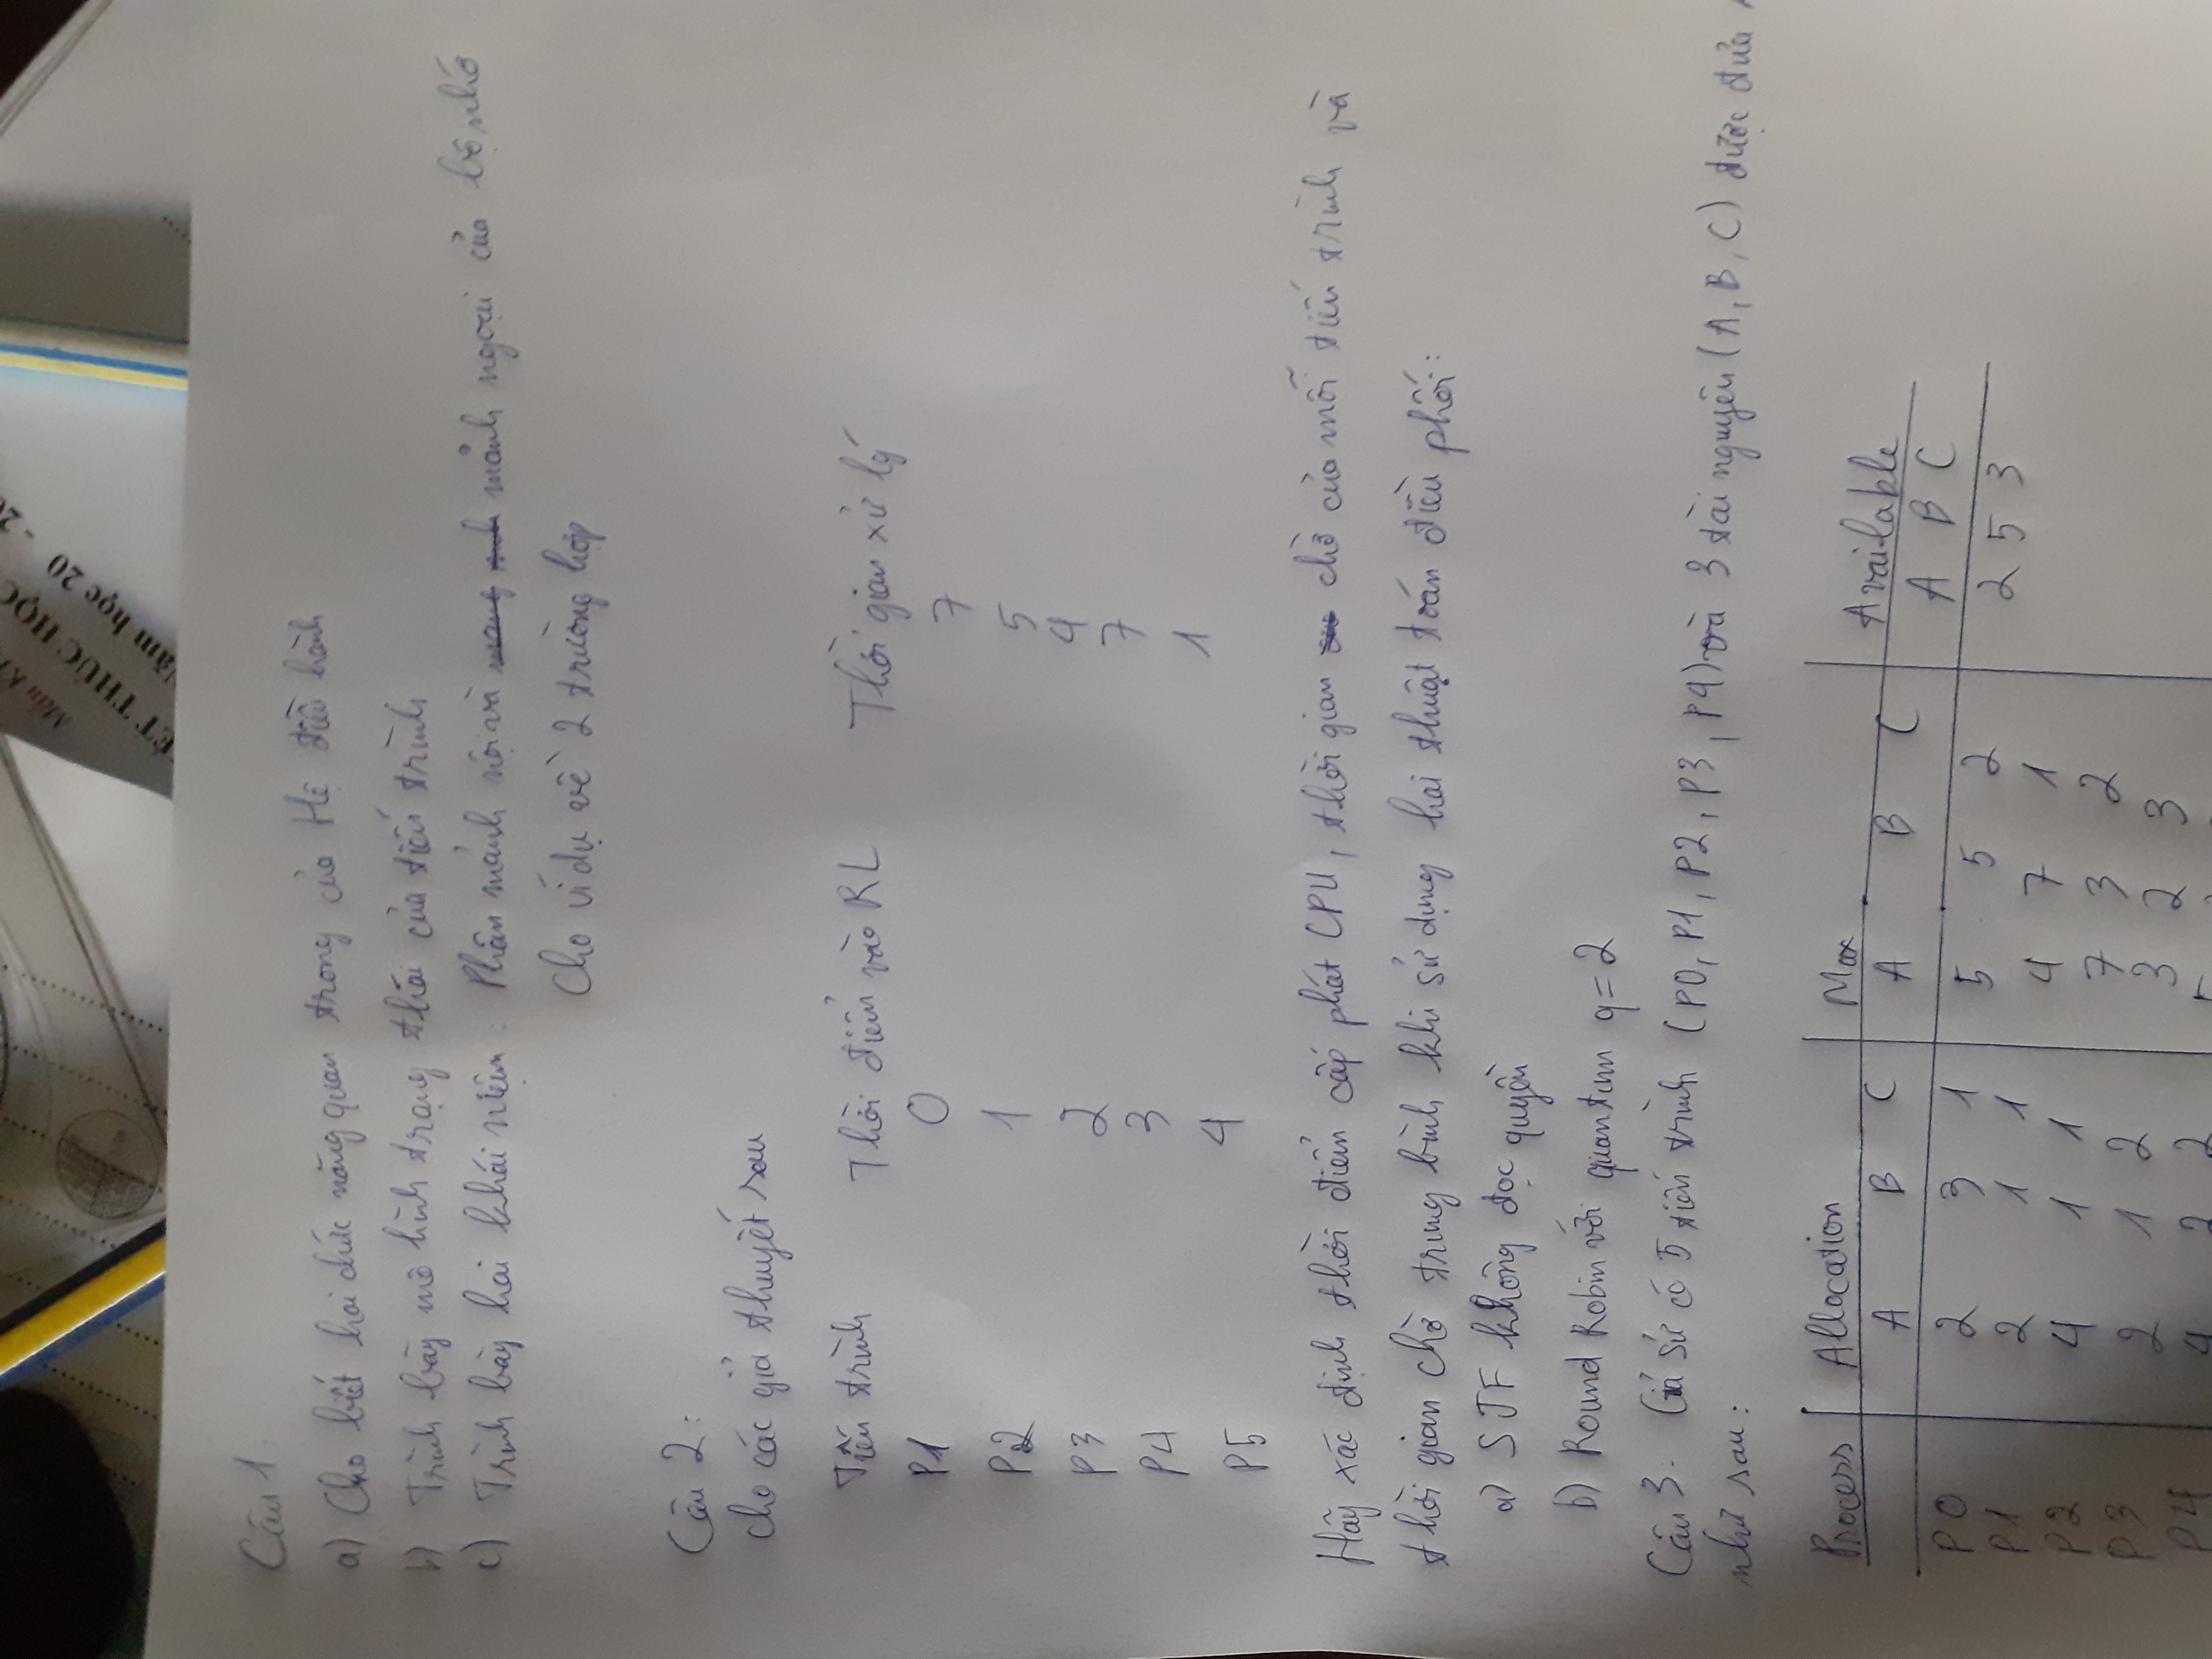 Câu 1:
a) Cho biết hai chức năng quan trong của Hệ điều hành
b) Trình bày mô hình trạng thái của tiến trình
c) Trình bày hai khái niệm: Phân mảnh nội và mảnh ngoại của bộ nhớ
Cho ví dụ về 2 trường hợp
Câu 2:
Cho các giả thuyết sau
Tiến trình Thời điểm vào RL Thời gian xử lý
P1 0 7
P2 1 5
P3 2 4
P4 3 7
P5 4 1
Hãy xác định thời điểm cấp phát CPU, thời gian chờ của mỗi tiến trình và
thời gian chờ trung bình khi sử dụng hai thuật toán điều phối:
a) SJF không đọc quyền
b) Round Robin với quantum q=2
Câu 3. Giả sử có 5 tiến trình (P0, P1, P2, P3, P4) và 3 tài nguyên (A, B, C) được
như sau:
Process Allocation Max Available
A B C A B C A B C
P0 2 3 1 5 5 2 2 5 3
P1 2 1 1 4 7 1
P2 4 1 1 7 3 2
P3 2 1 2 3 2 3
P4 4 2 2
ẾT THÚC HỌC
Năm học 20 - 20